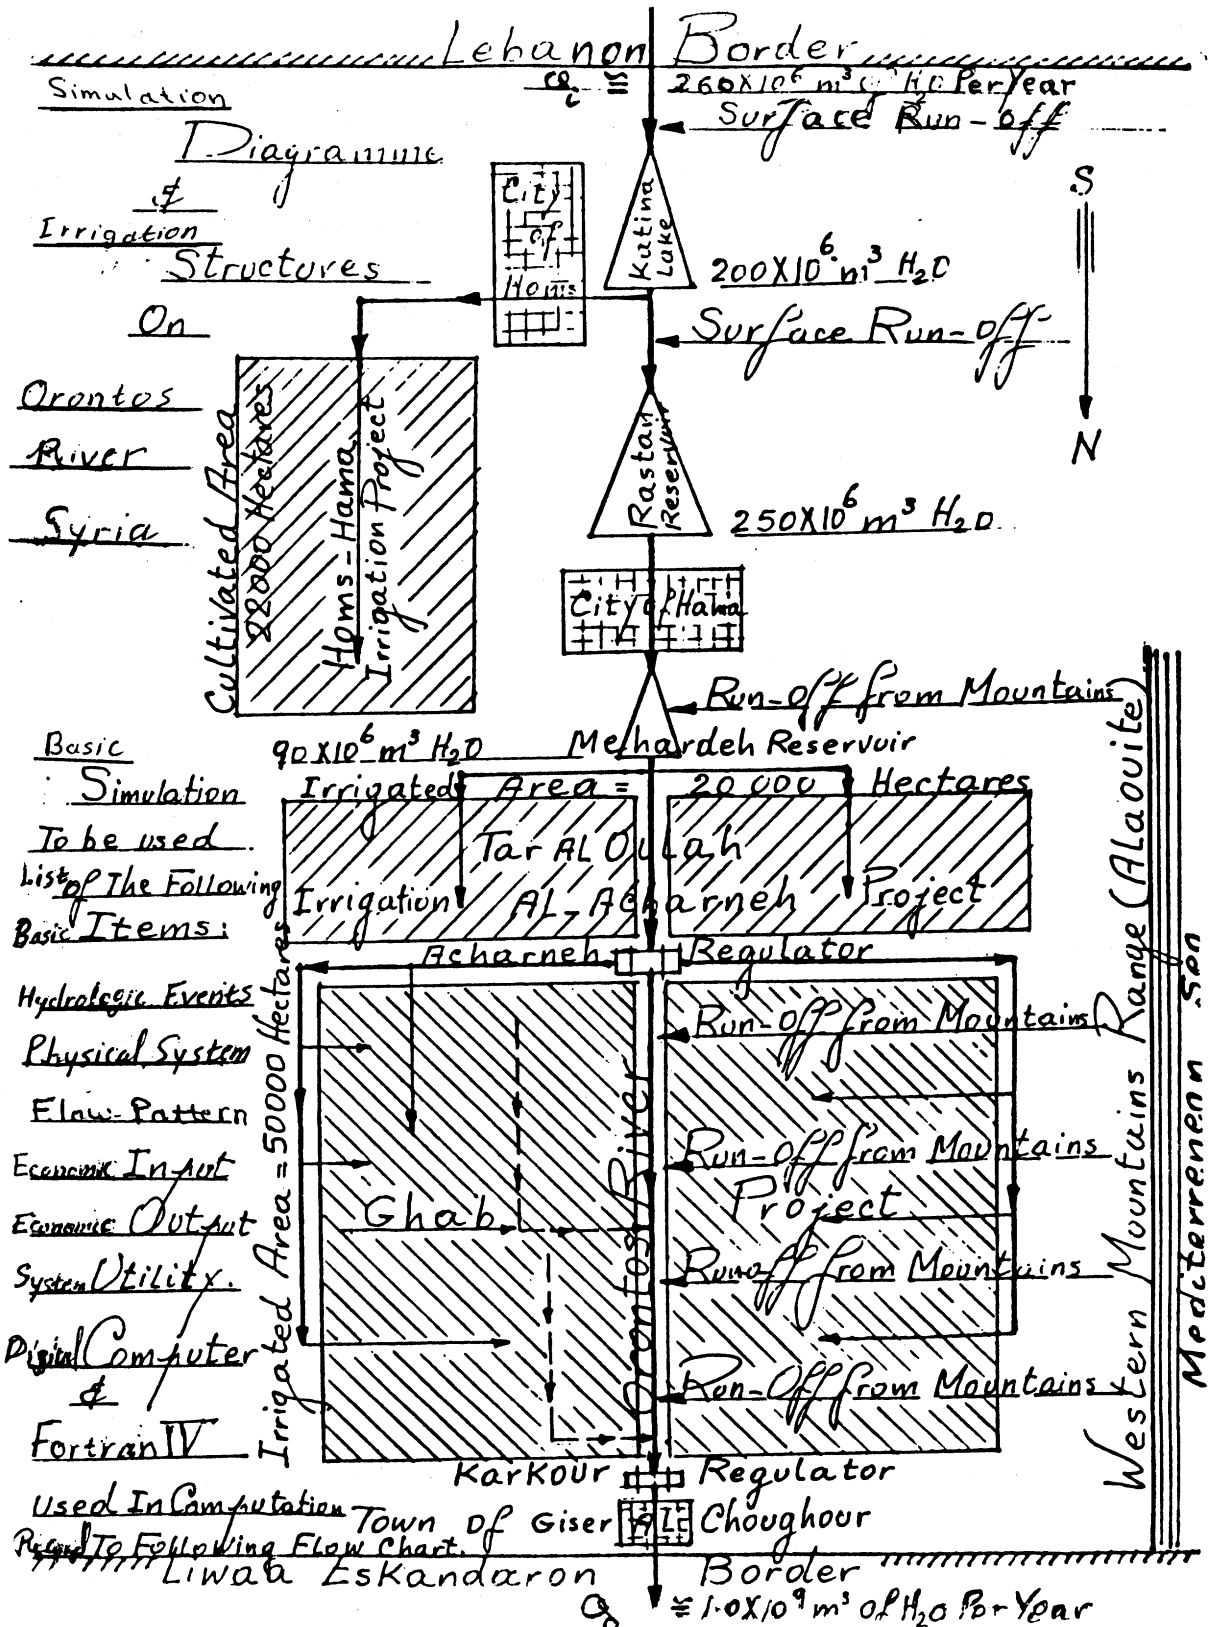 Lebanon Border
Qi ≅ 260X10⁶ m³ of H₂O Per Year
Surface Run-off
Simulation
Diagramme
&
Irrigation
Structures
On
Orontos
River
Syria
City
of
Homs
Kutina
Lake
200X10⁶ m³ H₂O
S
N
Surface Run-off
Cultivated Area
22000 Hectares
Homs-Hama
Irrigation Project
Rastan
Reservoir
250X10⁶ m³ H₂O
City of Hama
Run-off from Mountains
90X10⁶ m³ H₂O Mehardeh Reservoir
Irrigated Area = 20000 Hectares
Tar AL Oulah
Irrigation AL-Acharneh Project
Acharneh Regulator
Basic
Simulation
To be used
List of The Following
Basic Items:
Hydrologic Events
Physical System
Flow-Pattern
Economic Input
Economic Output
System Utility.
Digital Computer
&
Fortran IV
used In Computation
To Following Flow Chart.
Irrigated Area = 50000 Hectares
Run-off from Mountains
Run-off from Mountains
Ghab Project
Run-off from Mountains
Run-off from Mountains
Orontos River
Western Mountains Range (Alaouite)
Mediterrenean Sea
Karkour Regulator
Town Of Giser AL Choughour
Liwaa Eskandaron Border
Qo ≅ 1.0X10⁹ m³ of H₂O Per Year